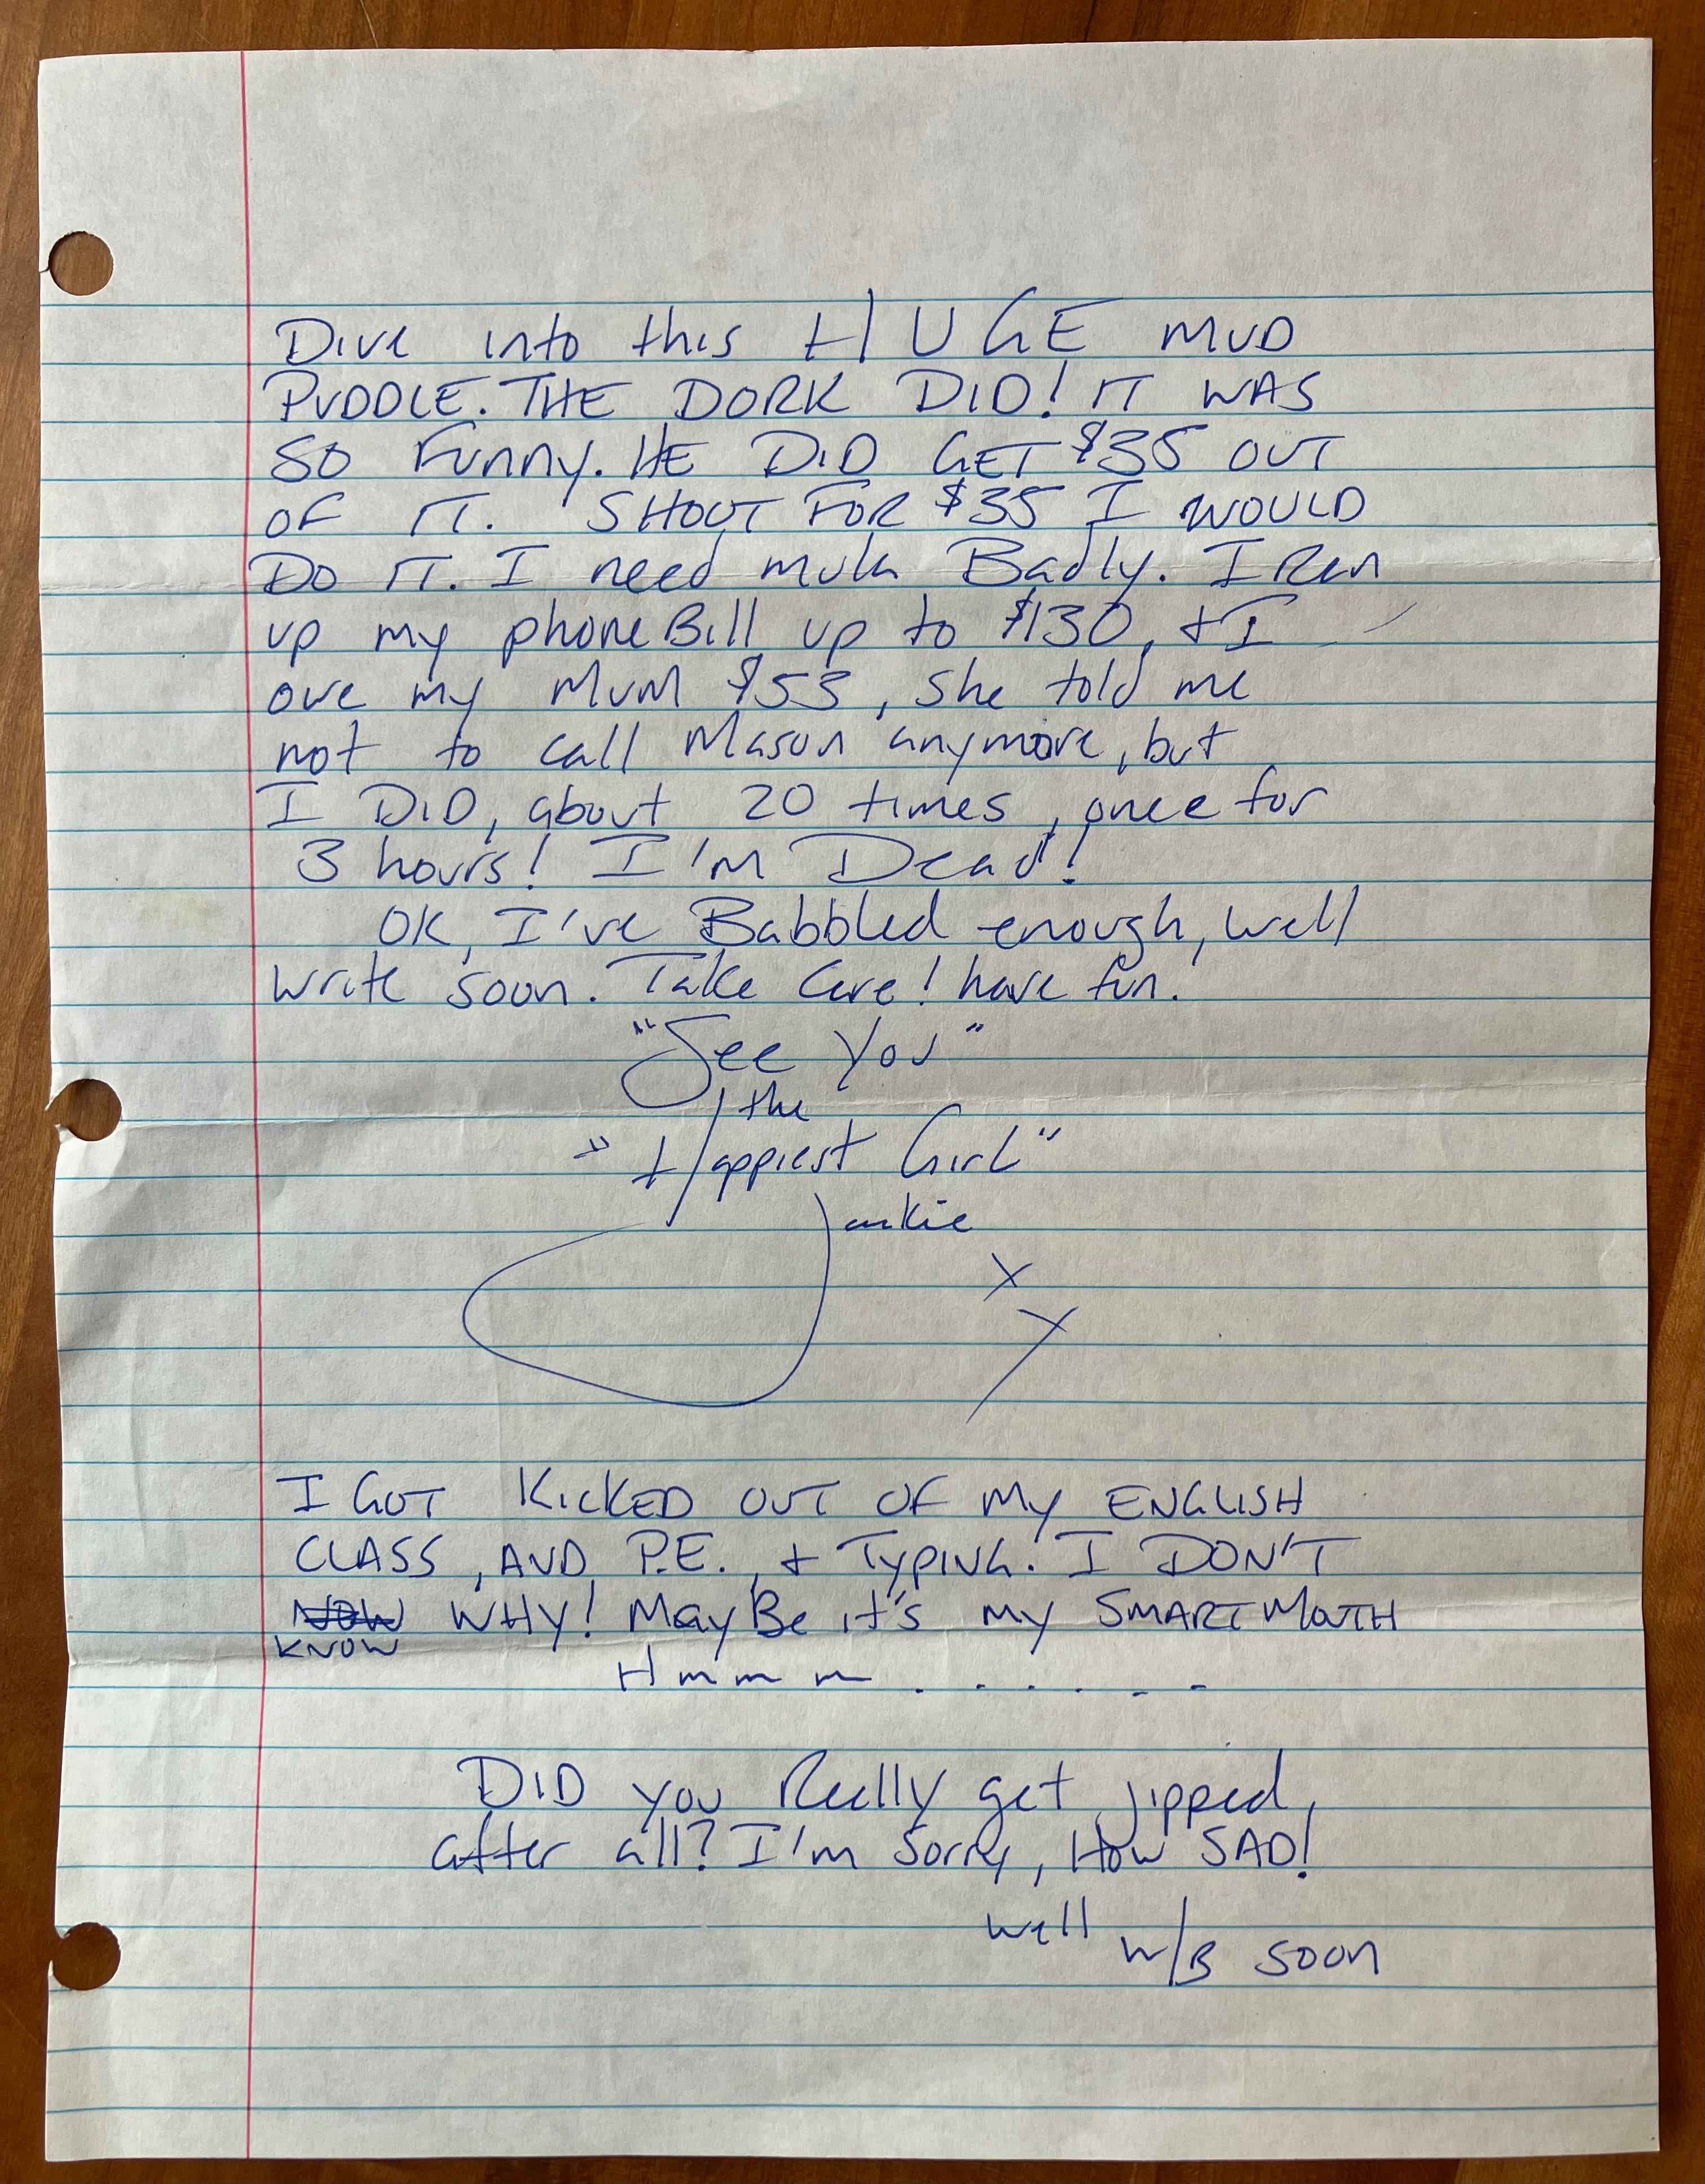 Dive into this HUGE MUD
PUDDLE. THE DORK DID! IT WAS
SO Funny. HE DID GET $35 OUT
OF IT. SHOOT FOR $35 I WOULD
DO IT. I need mula Badly. I Ran
up my phone Bill up to $130, + I
owe my MUM $53, she told me
not to call Mason anymore, but
I DID, about 20 times, once for
3 hours! I'M Dead!
OK, I've Babbled enough, well
write soon. Take Care! have fun.
"See You"
the
"Happiest Girl"
Jackie
X
Y
I GOT KICKED OUT OF MY ENGLISH
CLASS, AND P.E. + TYPING. I DON'T
NOW WHY! MayBe it's my SMART MOUTH
KNOW
Hmmm . . . . . .
DID you Really get jipped,
after all? I'm sorry, How SAD!
well w/B soon